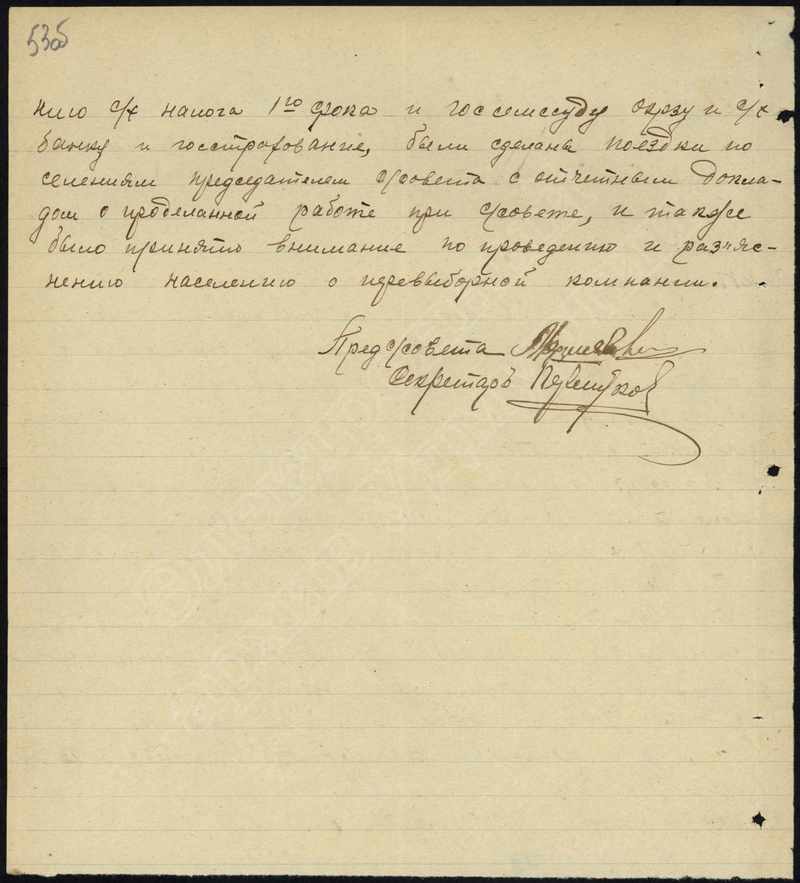 53об
нию с/х налога 1го срока и госсемссуду окрзу и с/х
банку и госстрахование, были сделаны поездки по
селениям председателем с/совета с отчетным докла-
дом о проделанной работе при с/совете, и также
было принято внимание по проведению и разъяс-
нению населению о перевыборной компании.
Пред с/совета
Секретарь